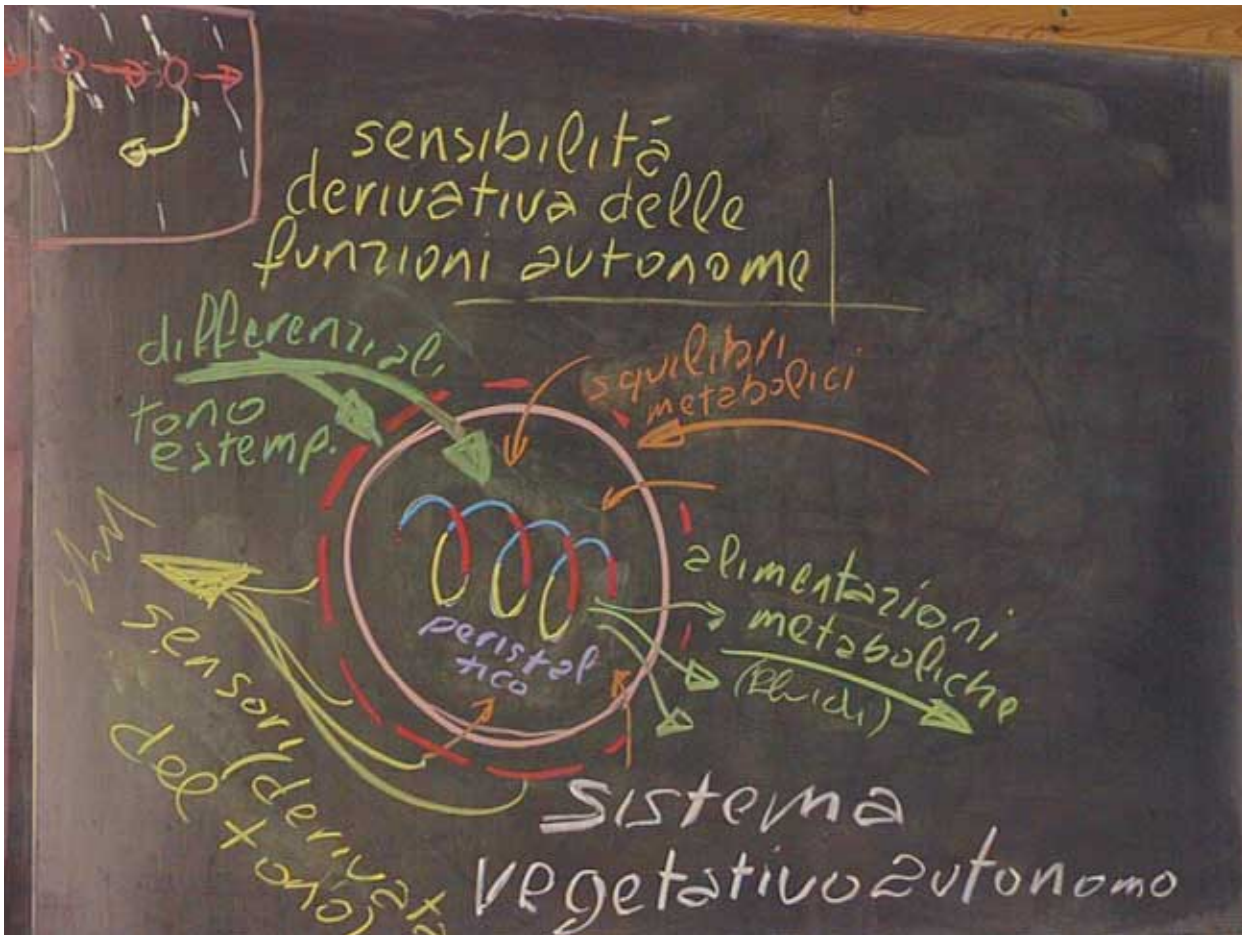 sensibilità
derivativa delle
funzioni autonome
differenziali
tono
estemp.
squilibri
metabolici
peristal
tico
alimentazioni
metaboliche
(fluidi)
sensori
(derivata
del tono)
sistema
vegetativo autonomo